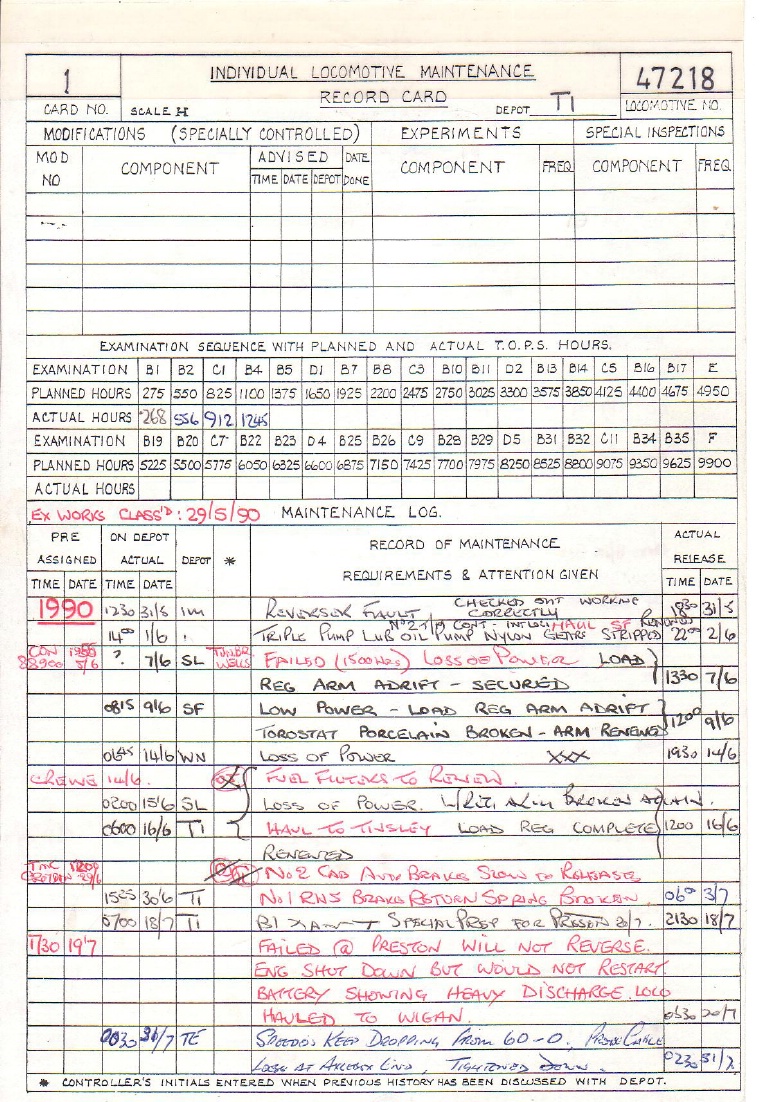 1
CARD NO.
SCALE H
INDIVIDUAL LOCOMOTIVE MAINTENANCE
RECORD CARD
DEPOT TI
47218
LOCOMOTIVE NO.
MODIFICATIONS (SPECIALLY CONTROLLED) EXPERIMENTS SPECIAL INSPECTIONS
MOD NO COMPONENT ADVISED DATE DONE COMPONENT FREQ COMPONENT FREQ
TIME DATE DEPOT
EXAMINATION SEQUENCE WITH PLANNED AND ACTUAL T.O.P.S. HOURS.
EXAMINATION B1 B2 C1 B4 B5 D1 B7 B8 C3 B10 B11 D2 B13 B14 C5 B16 B17 E
PLANNED HOURS 275 550 825 1100 1375 1650 1925 2200 2475 2750 3025 3300 3575 3850 4125 4400 4675 4950
ACTUAL HOURS 268 556 912 1245
EXAMINATION B19 B20 C7 B22 B23 D4 B25 B26 C9 B28 B29 D5 B31 B32 C11 B34 B35 F
PLANNED HOURS 5225 5500 5775 6050 6325 6600 6875 7150 7425 7700 7975 8250 8525 8800 9075 9350 9625 9900
ACTUAL HOURS
EX WORKS CLASS'D: 29/5/90 MAINTENANCE LOG.
PRE ASSIGNED ON DEPOT ACTUAL DEPOT * RECORD OF MAINTENANCE ACTUAL RELEASE
TIME DATE TIME DATE REQUIREMENTS & ATTENTION GIVEN TIME DATE
1990 1230 31/5 IM REVERSER FAULT CHECKED OUT WORKING CORRECTLY 1830 31/5
1400 1/6 TRIPLE PUMP LUB OIL PUMP NYLON GEARS STRIPPED 2200 2/6
5/6 ? 7/6 SL WELLS FAILED (1500HRS) LOSS OF POWER LOAD
REG ARM ADRIFT - SECURED 1330 7/6
0815 9/6 SF LOW POWER - LOAD REG ARM ADRIFT
TOROSTAT PORCELAIN BROKEN - ARM RENEWED 1200 9/6
0645 14/6 WN LOSS OF POWER XXX 1930 14/6
CREWE 14/6. FUEL FILTERS TO RENEW.
0200 15/6 SL LOSS OF POWER. ARM BROKEN AGAIN.
0600 16/6 TI HAUL TO TINSLEY LOAD REG COMPLETE 1200 16/6
RENEWED
29/6 NO 2 CAB AUTO BRAKE SLOW TO RELEASE
1525 30/6 TI NO 1 BRAKE RETURN SPRING BROKEN 0600 3/7
0700 18/7 TI B1 EXAM SPECIAL PREP FOR PRESTON 20/7. 2130 18/7
1730 19/7 FAILED @ PRESTON WILL NOT REVERSE.
ENG SHUT DOWN BUT WOULD NOT RESTART
BATTERY SHOWING HEAVY DISCHARGE. LOCO
HAULED TO WIGAN. 0530 20/7
0030 31/7 TE SPEEDO'S KEEP DROPPING FROM 60-0, CABLE
LOOSE AT END, TIGHTENED DOWN. 0230 31/7
* CONTROLLER'S INITIALS ENTERED WHEN PREVIOUS HISTORY HAS BEEN DISCUSSED WITH DEPOT.